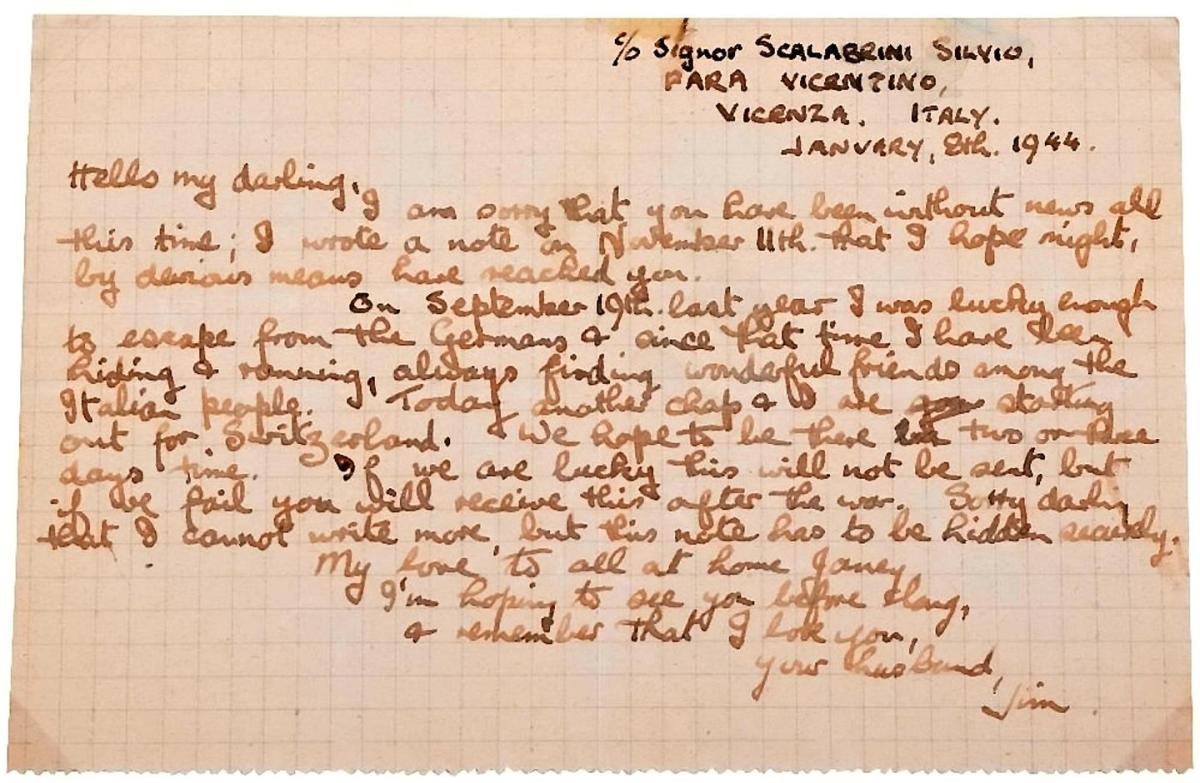 c/o Signor SCALABRINI SILVIO,
FARA VICENTINO,
VICENZA. ITALY.
JANUARY, 8th. 1944.
Hello my darling,
I am sorry that you have been without news all
this time; I wrote a note on November 11th. that I hope might,
by devious means have reached you.
On September 19th. last year I was lucky enough
to escape from the Germans & since that time I have been
hiding & running, always finding wonderful friends among the
Italian people. Today another chap & I are starting
out for Switzerland. We hope to be there in two or three
days time. If we are lucky this will not be sent, but
if we fail you will receive this after the war. Sorry darling
that I cannot write more, but this note has to be hidden securely.
My love to all at home Janey,
I'm hoping to see you before long,
& remember that I love you,
your husband,
Jim